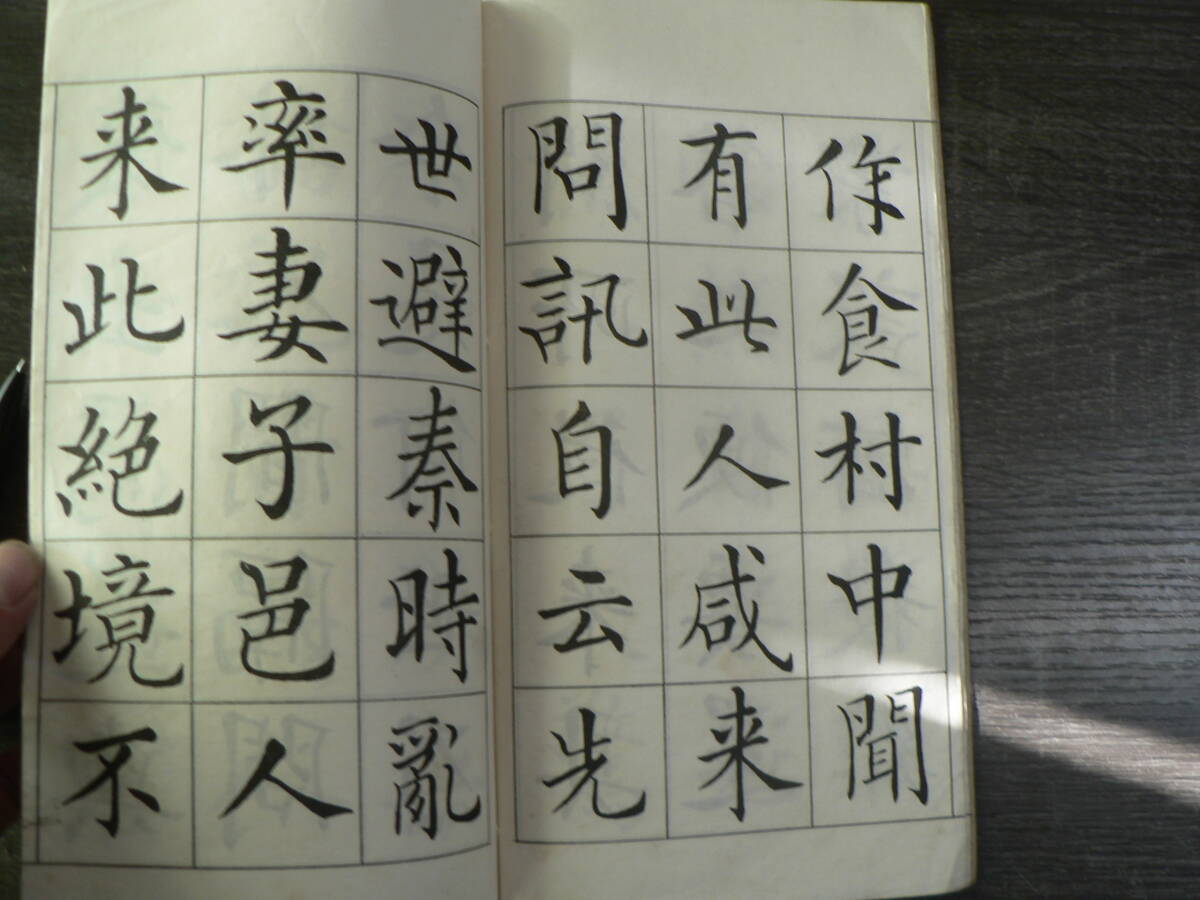 作食村中聞
有此人咸来
問訊自云先
世避秦時亂
率妻子邑人
来此絶境不